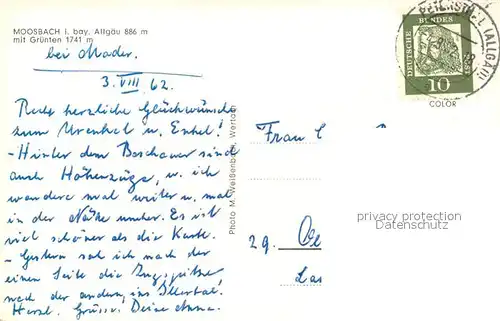 MOOSBACH i. bay. Allgäu 886 m
mit Grünten 1741 m
bei Mader.
3. VIII 62.
Recht herzliche Glückwünsche
zum Urenkel u. Enkel!
- Hinter dem Beschauer sind
auch Höhenzüge, u. ich
wandere mal weiter u. mal
in der Nähe umher. Es ist
viel schöner als die Karte.
- Gestern sah ich nach der
einen Seite die Zugspitze
nach der andern, ins Illertal!
Herzl. Grüsse. Deine Anna.
Photo M. Weißenbach, Wertach
DEUTSCHE BUNDESPOST
10
(ALLGÄU)
COLOR
Frau
privacy protection
Datenschutz